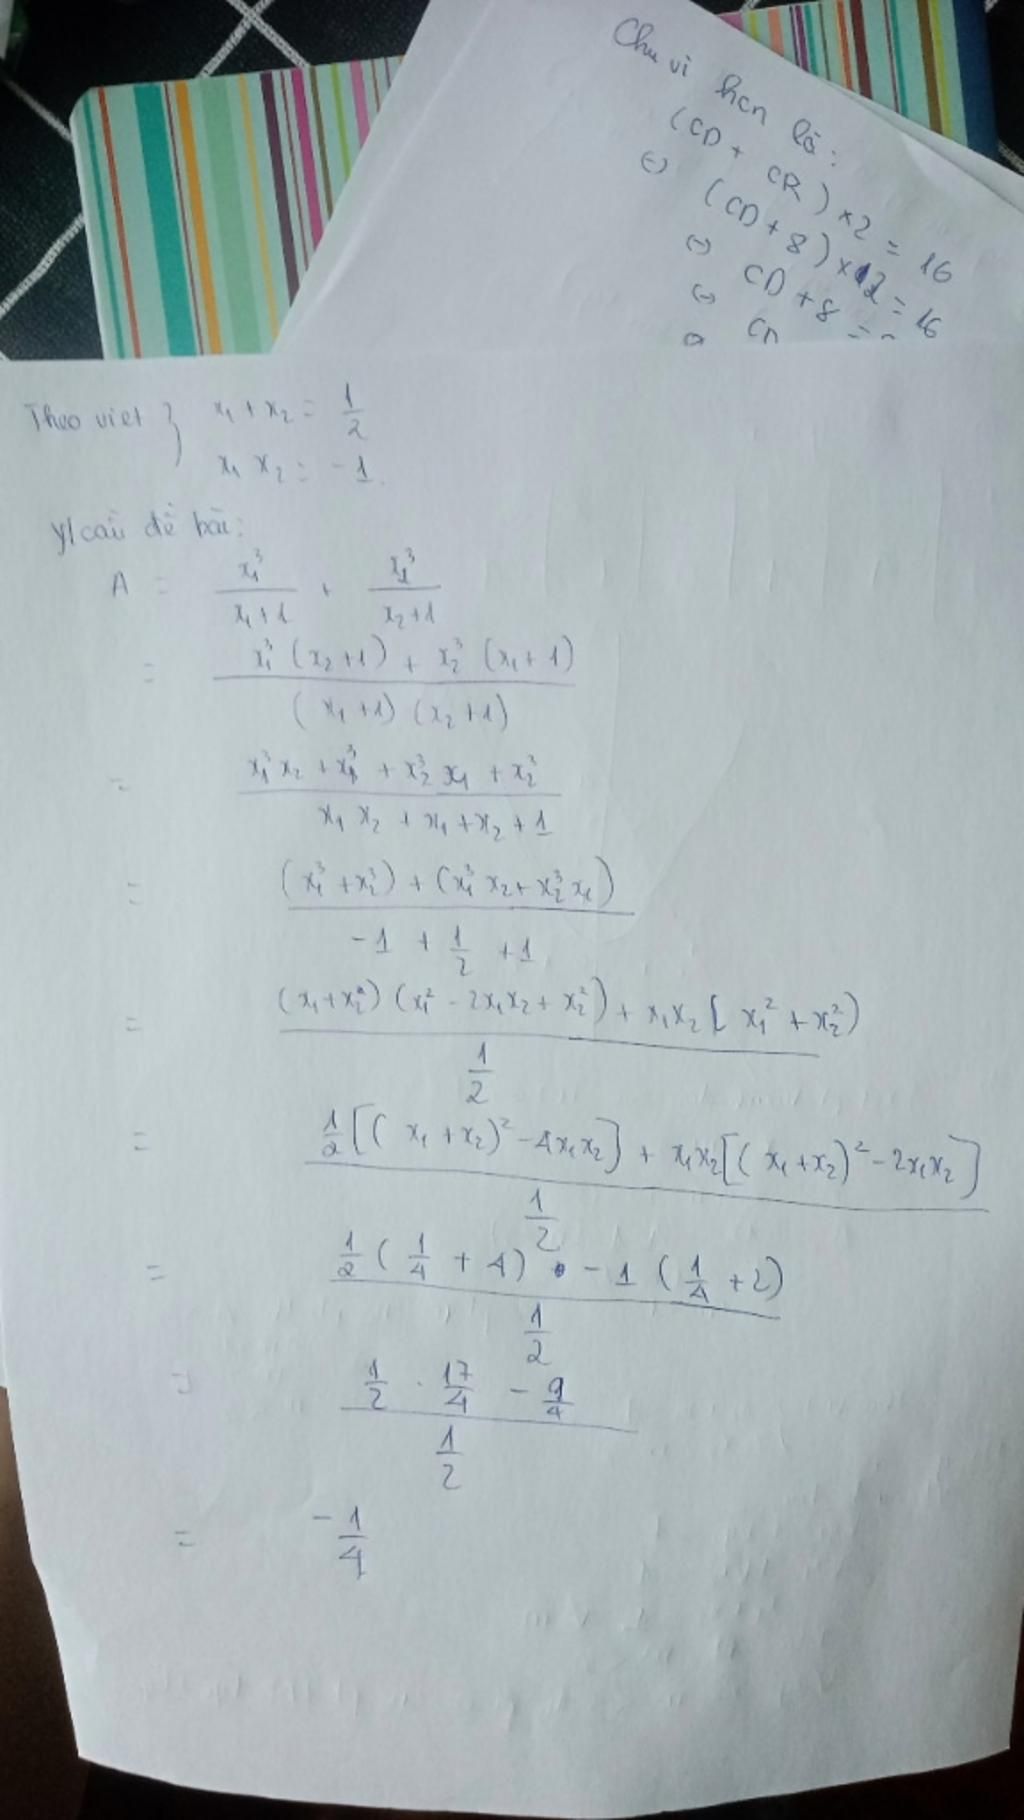 Chu vi hcn là:
(CD + CR) × 2 = 16
⇔ (CD + 8) × 2 = 16
⇔ CD + 8 =
⇔ CD
Theo viet } x₁ + x₂ = 1/2
x₁ x₂ = -1.
Y/cầu đề bài:
A = x₁³/(x₁+1) + x₁³/(x₂+1)
= (x₁³ (x₂+1) + x₂³ (x₁+1))/((x₁+1) (x₂+1))
= (x₁³ x₂ + x₁³ + x₂³ x₁ + x₂³)/(x₁ x₂ + x₁ + x₂ + 1)
= ((x₁³ + x₂³) + (x₁³ x₂ + x₂³ x₁))/(-1 + 1/2 + 1)
= ((x₁ + x₂) (x₁² - 2x₁x₂ + x₂²) + x₁x₂ ( x₁² + x₂²))/(1/2)
= (1/2 [( x₁ + x₂)² - 4x₁x₂] + x₁x₂ [( x₁ + x₂)² - 2x₁x₂])/(1/2)
= (1/2 (1/4 + 4) - 1 (1/4 + 2))/(1/2)
= (1/2 . 17/4 - 9/4)/(1/2)
= -1/4